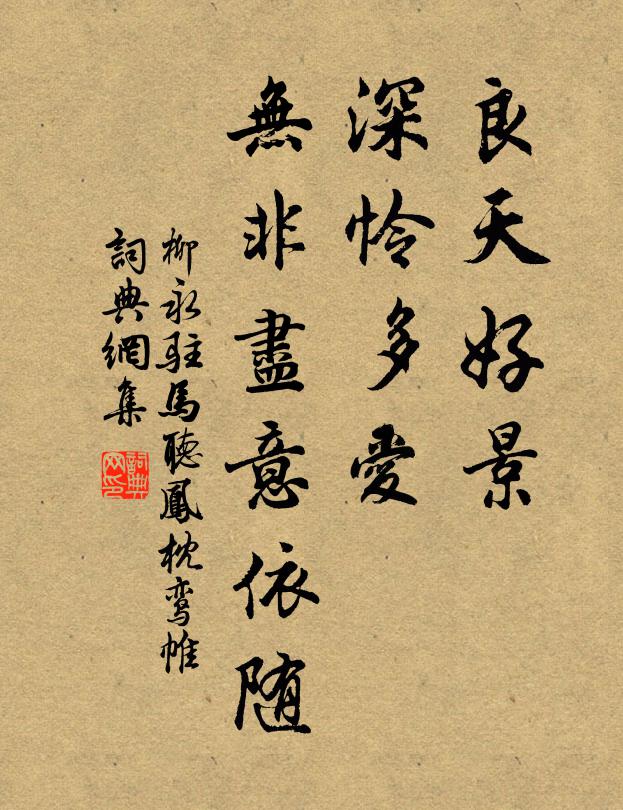 良天好景
深怜多愛
無非盡意依随
柳永駐馬聽鳳枕鸾帷
詞典網集
詞典
网印